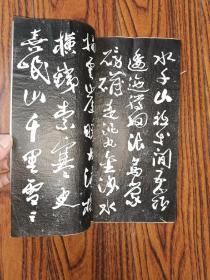 水千山祗等闲五岭
逶迤腾细浪乌蒙
磅礴走泥丸金沙水
拍云崖暖大渡桥
横铁索寒更
喜岷山千里雪三